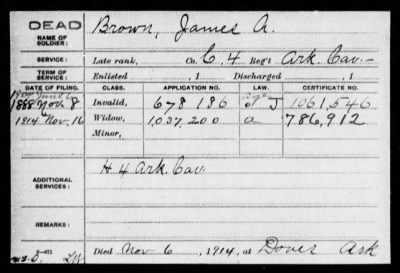 DEAD
NAME OF SOLDIER:
Brown, James A.
SERVICE:
Late rank, Co. C, 4 Reg't Ark. Cav.
TERM OF SERVICE:
Enlisted , 1 Discharged , 1
DATE OF FILING. CLASS. APPLICATION NO. LAW. CERTIFICATE NO.
1888 Nov. 8 Invalid, 678 186 J 1061,546
1914 Nov. 16 Widow, 1,037,200 a 786,912
Minor,
ADDITIONAL SERVICES:
H 4 Ark. Cav.
REMARKS:
Died Nov 6, 1914, at Dover Ark